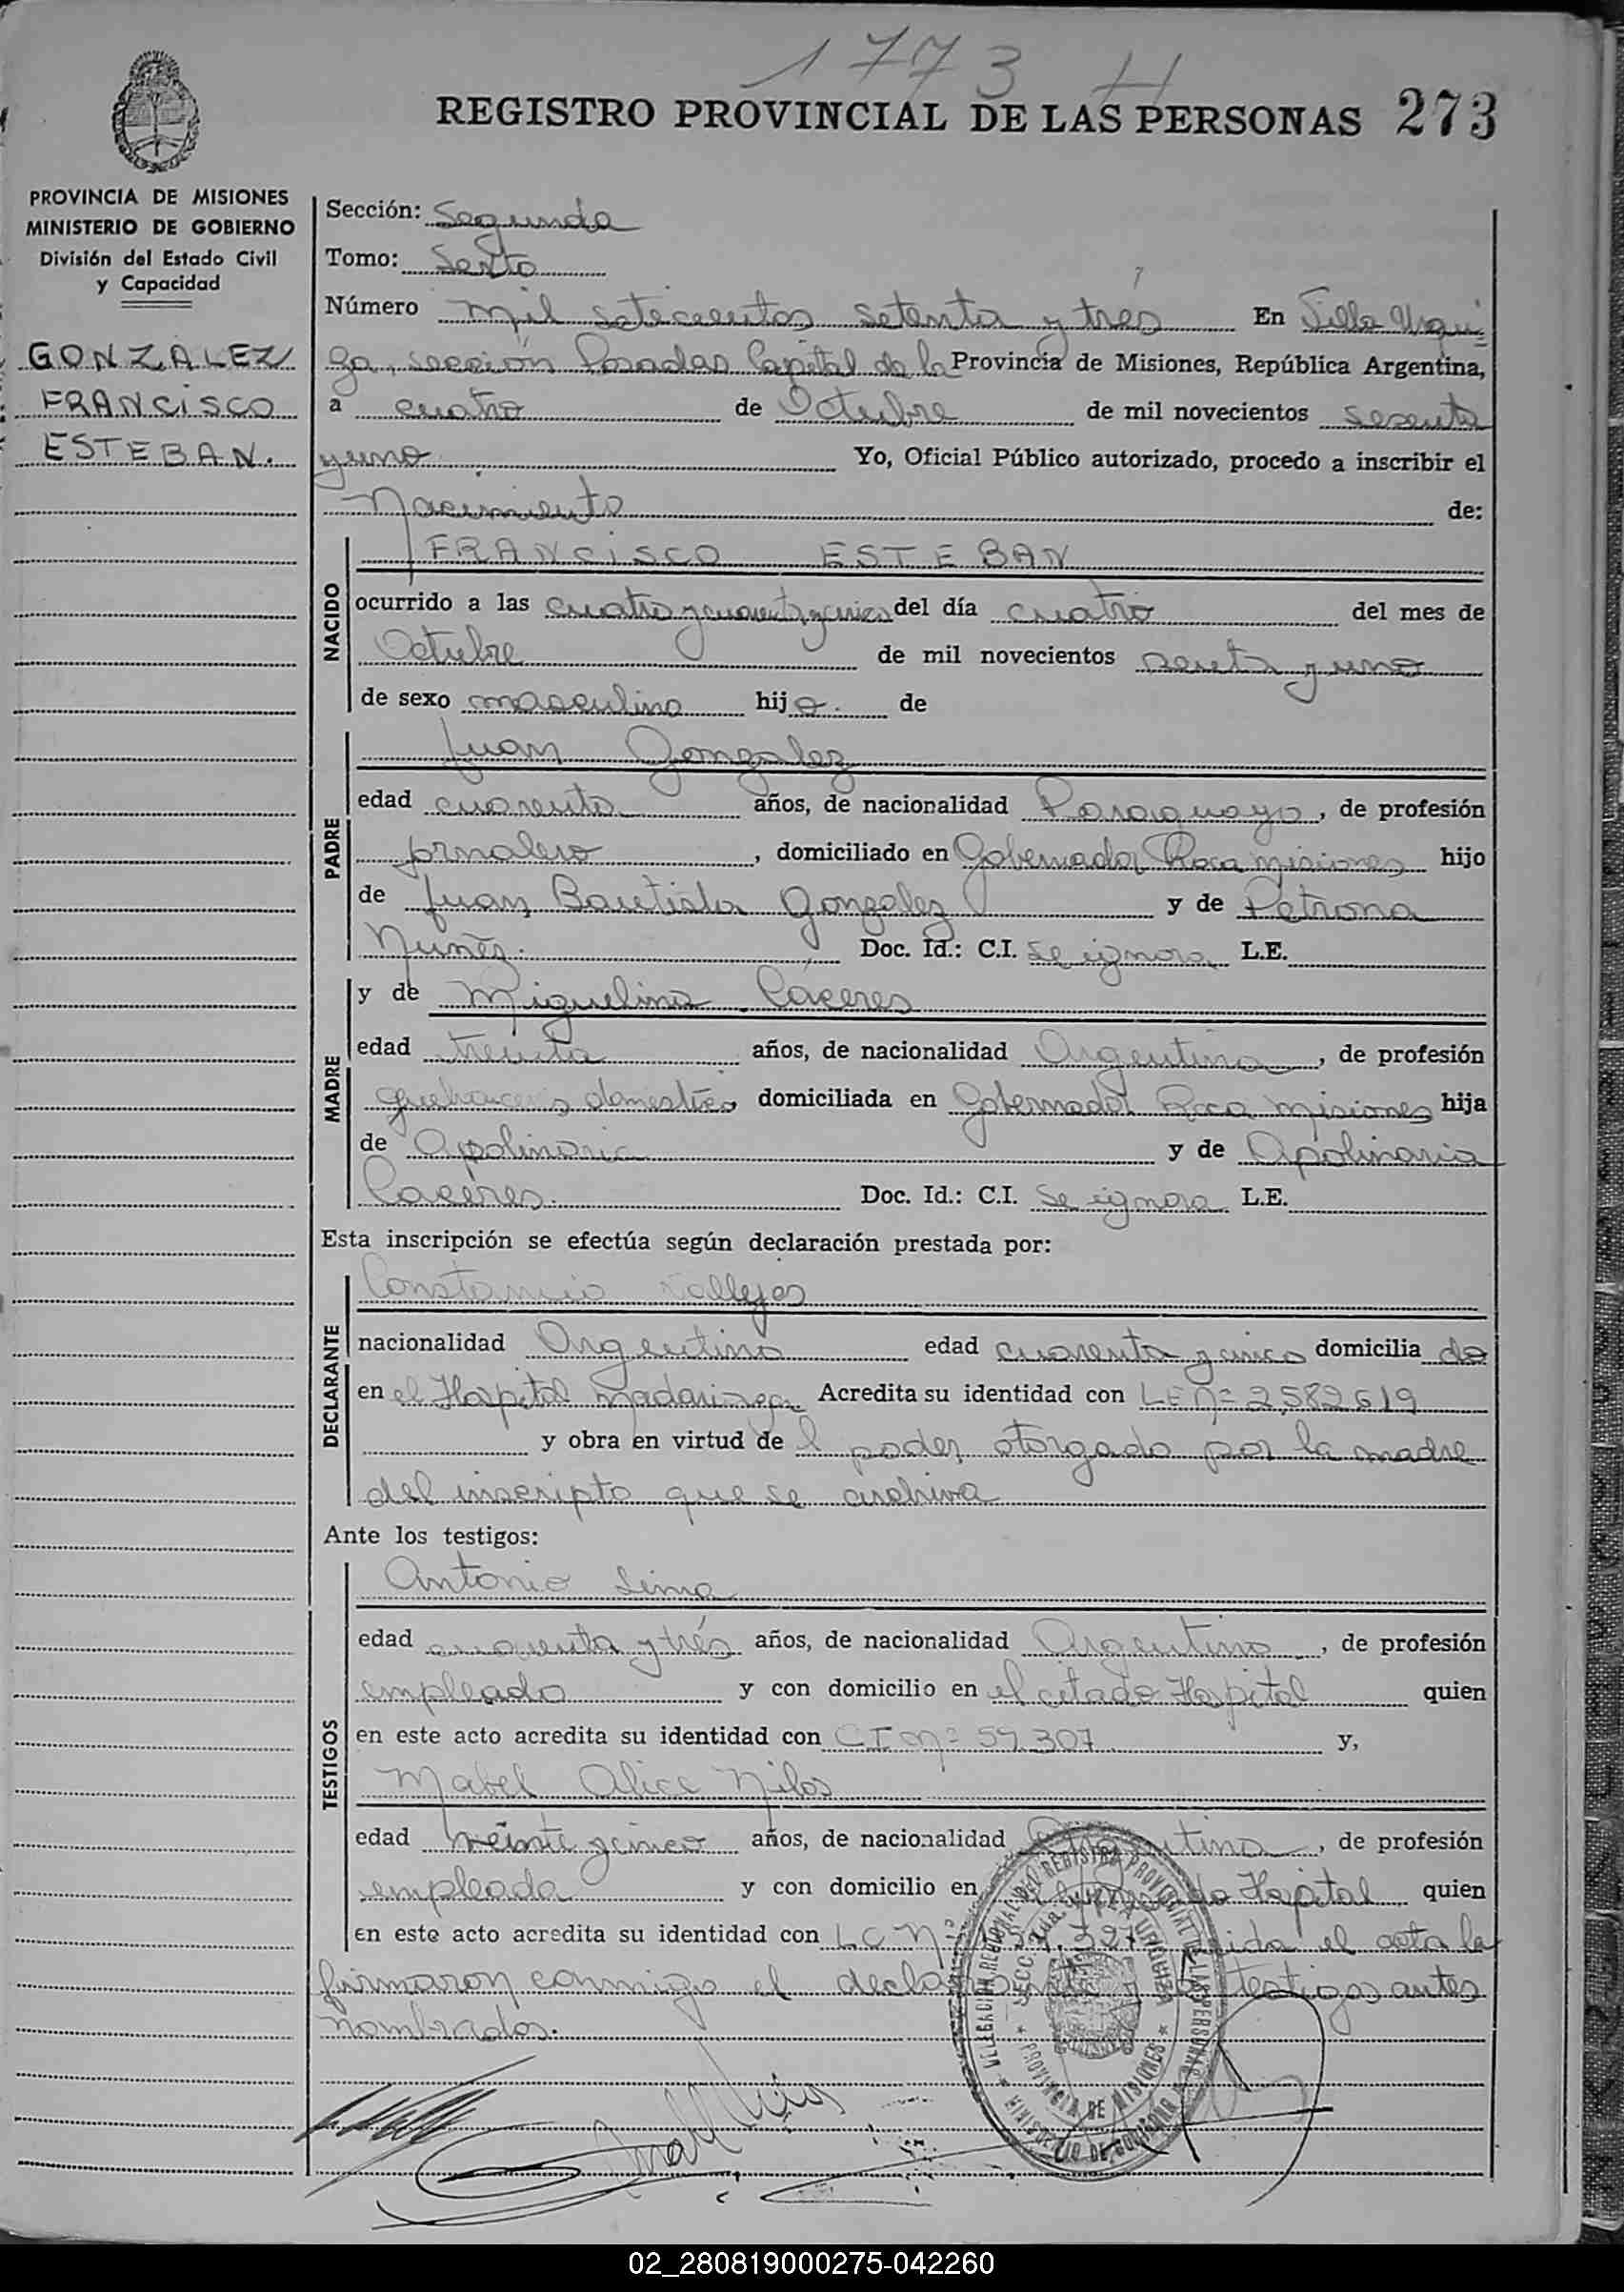 1773 H
REGISTRO PROVINCIAL DE LAS PERSONAS 273
PROVINCIA DE MISIONES
MINISTERIO DE GOBIERNO
División del Estado Civil
y Capacidad
GONZALEZ
FRANCISCO
ESTEBAN.
Sección: Segunda
Tomo: Sexto
Número mil setecientos setenta y trés En Villa Urqui
za, sección Posadas Capital de la Provincia de Misiones, República Argentina,
a cuatro de Octubre de mil novecientos sesenta
y uno Yo, Oficial Público autorizado, procedo a inscribir el
Nacimiento de:
NACIDO
FRANCISCO ESTEBAN
ocurrido a las cuatro y cuarenta y cinco del día cuatro del mes de
Octubre de mil novecientos sesenta y uno
de sexo masculino hijo. de
PADRE
Juan Gonzalez
edad cuarenta años, de nacionalidad Paraguayo, de profesión
jornalero, domiciliado en Gobernador Roca Misiones hijo
de Juan Bautista Gonzalez y de Petrona
Nuñez. Doc. Id.: C.I. se ignora L.E.
MADRE
y de Miguelina Caceres
edad treinta años, de nacionalidad Argentina, de profesión
quehaceres domesticos domiciliada en Gobernador Roca Misiones hija
de y de Apolinaria
Caceres. Doc. Id.: C.I. Se ignora L.E.
Esta inscripción se efectúa según declaración prestada por:
DECLARANTE
Constancio Vallejos
nacionalidad Argentino edad cuarenta y cinco domicilia do
en el Hospital Madariaga Acredita su identidad con L E Nº 2.582619
y obra en virtud de l poder otorgado por la madre
del inscripto que se archiva
Ante los testigos:
TESTIGOS
Antonio Lima
edad cuarenta y trés años, de nacionalidad Argentino, de profesión
empleado y con domicilio en el citado Hospital quien
en este acto acredita su identidad con C I Nº 59.307 y,
Mabel Alice
edad veinte y cinco años, de nacionalidad Argentina, de profesión
empleada y con domicilio en Hospital quien
en este acto acredita su identidad con L C Nº el acta la
firmaron conmigo el testigos antes
nombrados.
DELEGACION REGIONAL DEL REGISTRO PROVINCIAL DE LAS PERSONAS
MINISTERIO DE GOBIERNO
PROVINCIA DE MISIONES
02_280819000275-042260